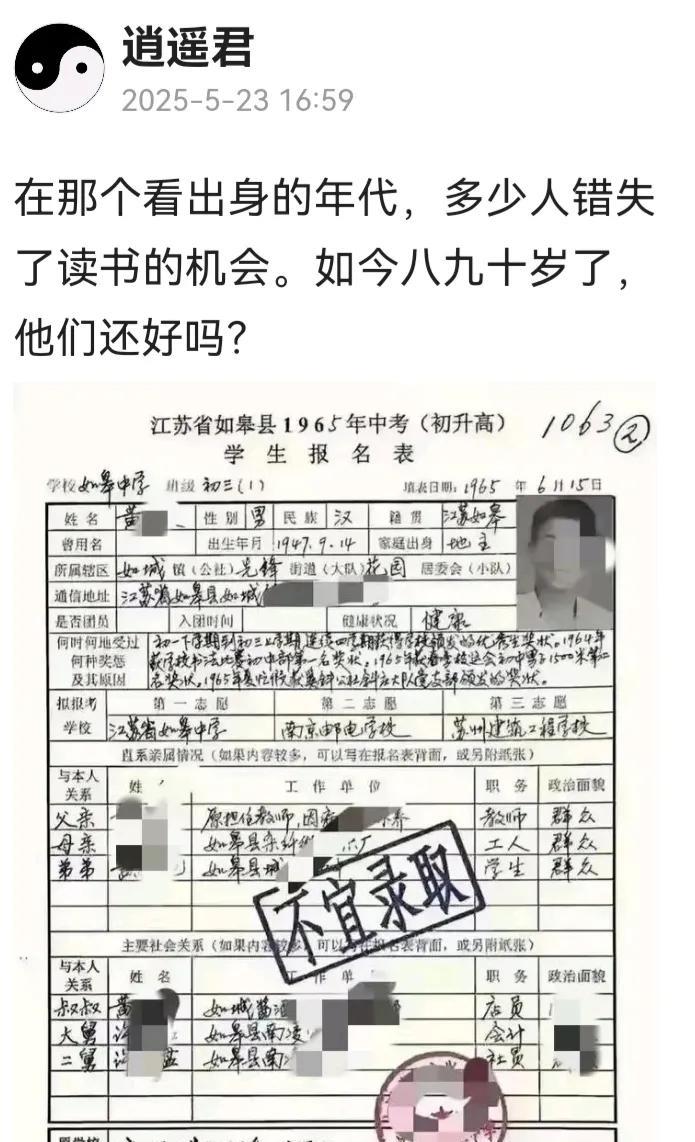 逍遥君
2025-5-23 16:59
在那个看出身的年代，多少人错失
了读书的机会。如今八九十岁了，
他们还好吗？
江苏省如皋县1965年中考（初升高） 1063 ②
学生报名表
学校 如皋中学 班级 初三(1) 填表日期：1965 年 6 月 15 日
姓名 黄 性别 男 民族 汉 籍贯 江苏如皋
曾用名 出生年月 1947.9.14 家庭出身 地主
所属辖区 如城 镇（公社）先锋 街道（大队）花园 居委会（小队）
通信地址 江苏省如皋县如城
是否团员 入团时间 健康状况 健康
何时何地受过 初一下学期到初三上学期连续四学期获得学校颁发的优秀生奖状。1964年
何种奖惩 获学校书法比赛初中部第一名奖状。1965年获春季校运会初中男子1500米第二
及其原因 名奖状。1965年夏忙假获 公社 大队党支部颁发的奖状。
拟报考 第一志愿 第二志愿 第三志愿
学校 江苏省如皋中学 南京邮电学校 苏州建筑工程学校
直系亲属情况（如果内容较多，可以写在报名表背面，或另附纸张）
与本人关系 姓 工作单位 职务 政治面貌
父亲 原担任教师，因 教师 群众
母亲 如皋县 厂 工人 群众
弟弟 如皋县城 学生 群众
不宜录取
主要社会关系（如果内容较多，可以写在报名表背面，或另附纸张）
与本人关系 姓名 工作单 职务 政治面貌
叔叔 黄 如城酱酒 店员
大舅 许 如皋县南凌 会计
二舅 许 如皋县南 社员
原学校